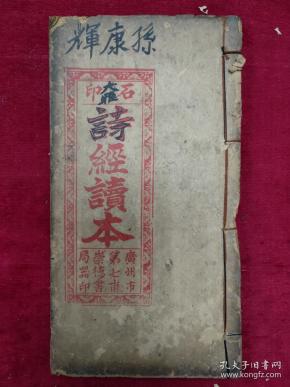 孫康輝
石印
詩經讀本
廣州市
第七甫
崇德書
局石印
孔夫子旧书网